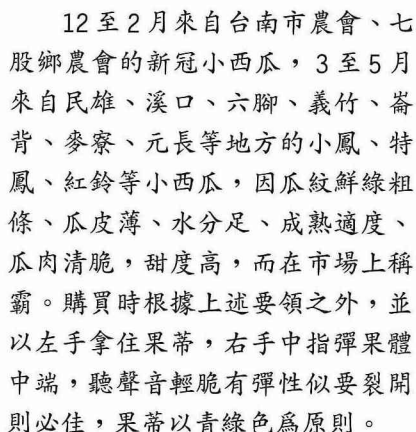 12至2月來自台南市農會、七
股鄉農會的新冠小西瓜，3至5月
來自民雄、溪口、六腳、義竹、崙
背、麥寮、元長等地方的小鳳、特
鳳、紅鈴等小西瓜，因瓜紋鮮綠粗
條、瓜皮薄、水分足、成熟適度、
瓜肉清脆，甜度高，而在市場上稱
霸。購買時根據上述要領之外，並
以左手拿住果蒂，右手中指彈果體
中端，聽聲音輕脆有彈性似要裂開
則必佳，果蒂以青綠色爲原則。